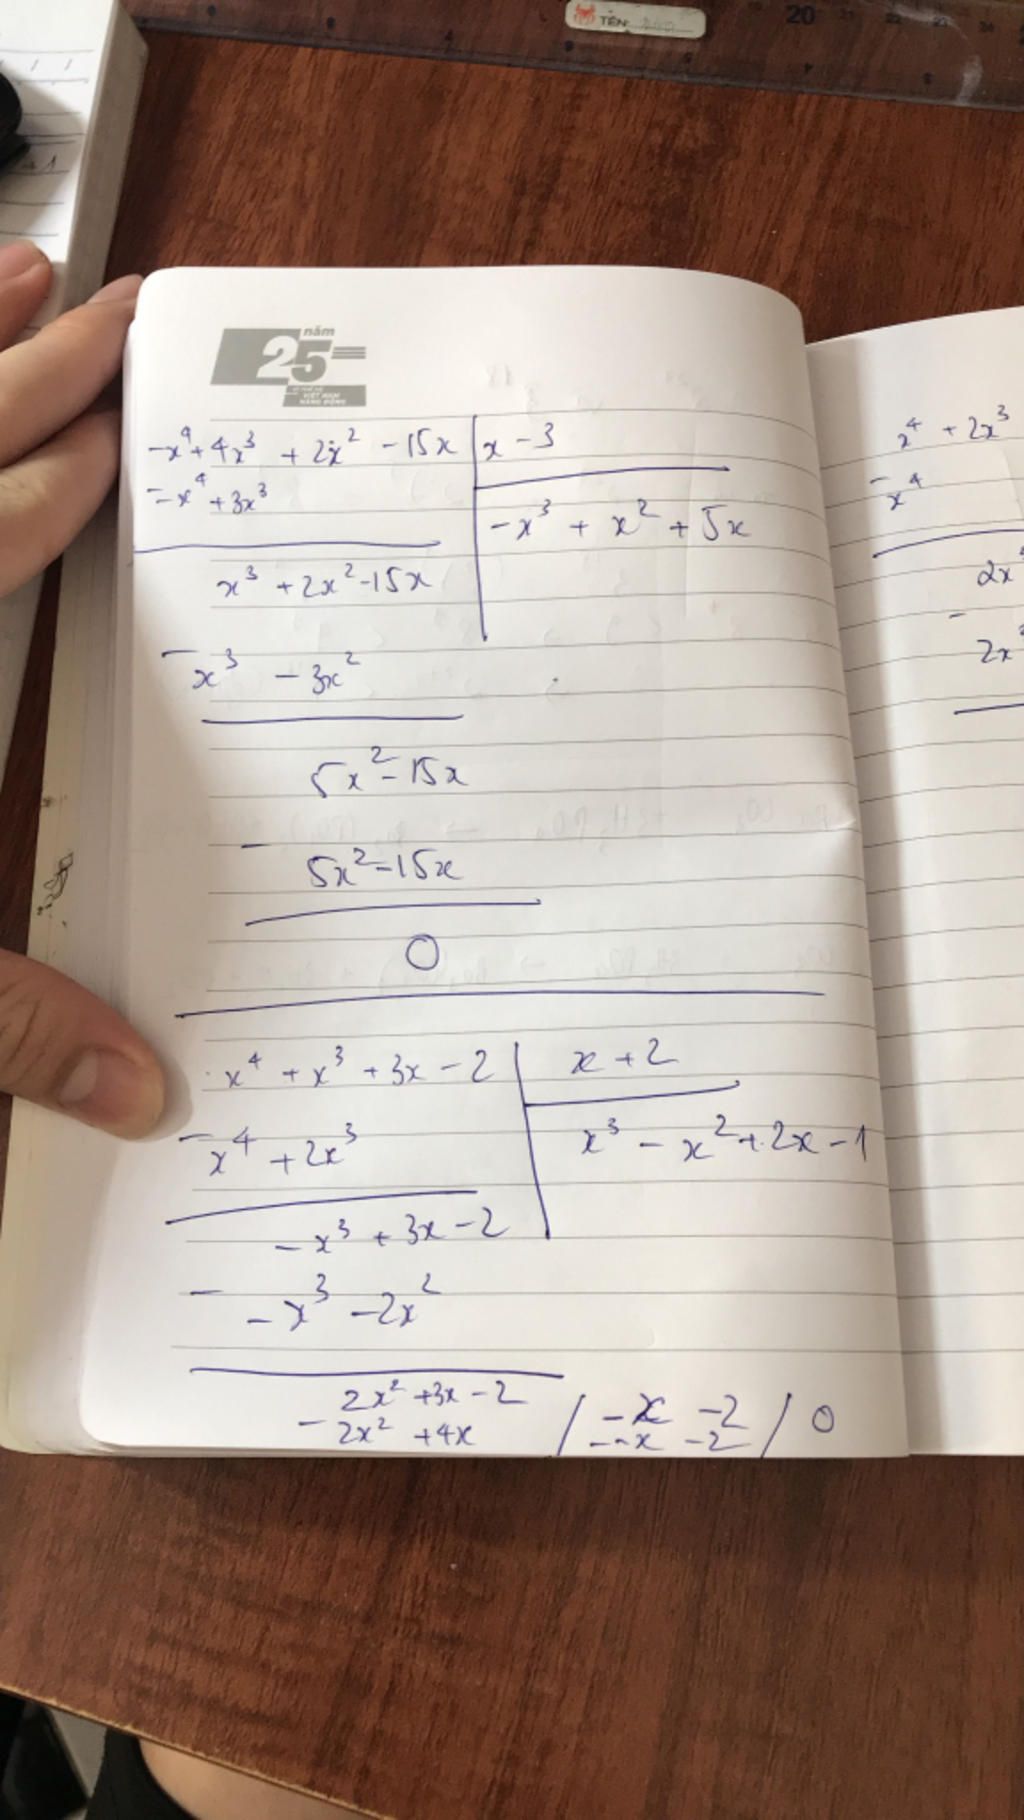 TÊN:
20 21 22 23 24
năm
25
VIỆT NAM
NĂNG ĐỘNG
-x⁴ + 4x³ + 2x² - 15x | x - 3
- -x⁴ + 3x³
-x³ + x² + 5x
x³ + 2x² - 15x
- x³ - 3x²
5x² - 15x
- 5x² - 15x
0
x⁴ + x³ + 3x - 2 | x + 2
- x⁴ + 2x³
x³ - x² + 2x - 1
-x³ + 3x - 2
- -x³ - 2x²
2x² + 3x - 2 / -x - 2 / 0
- 2x² + 4x - -x - 2
x⁴ + 2x³
- x⁴
2x
-
2x